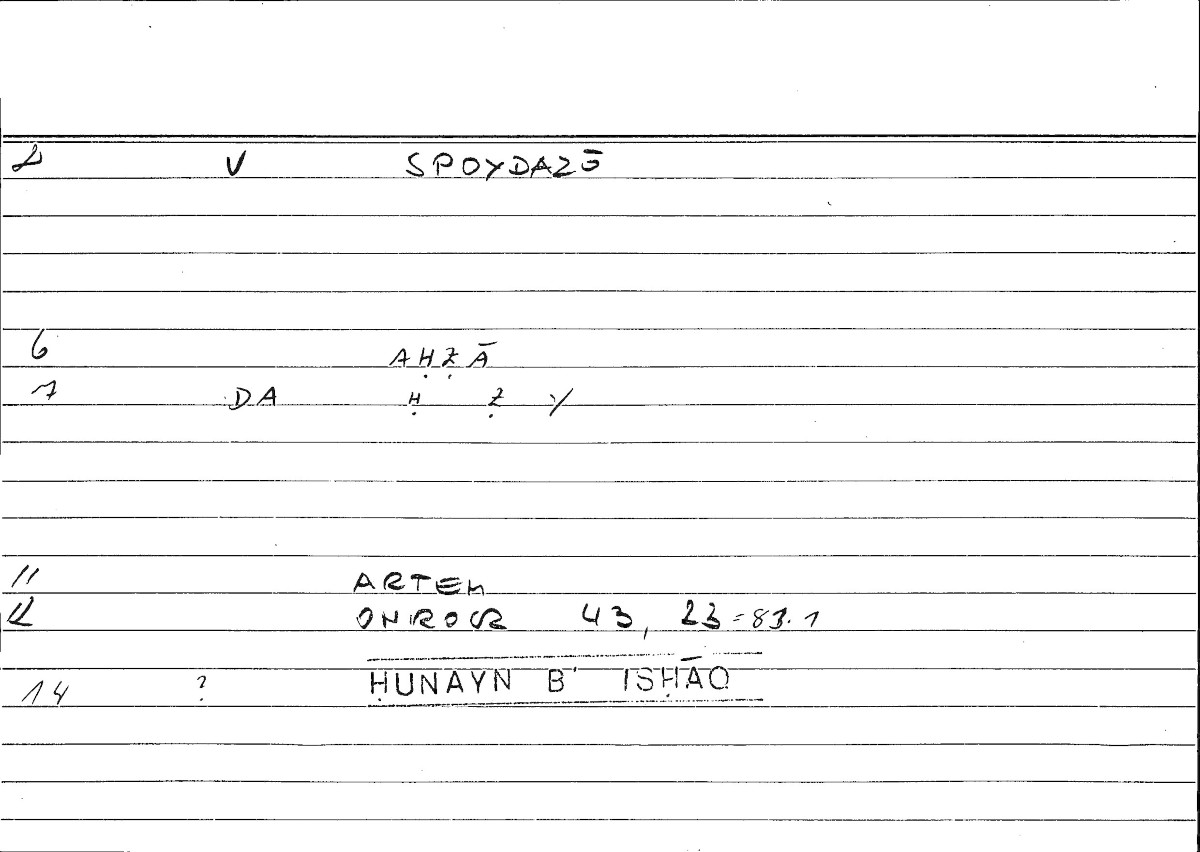 2 V SPOYDAZŌ
6 AḤẒĀ
7 DA Ḥ Ẓ Y
11 ARTEM
12 ONIROCR 43, 23 = 83.1
14 ? ḤUNAYN B' ISḤĀQ